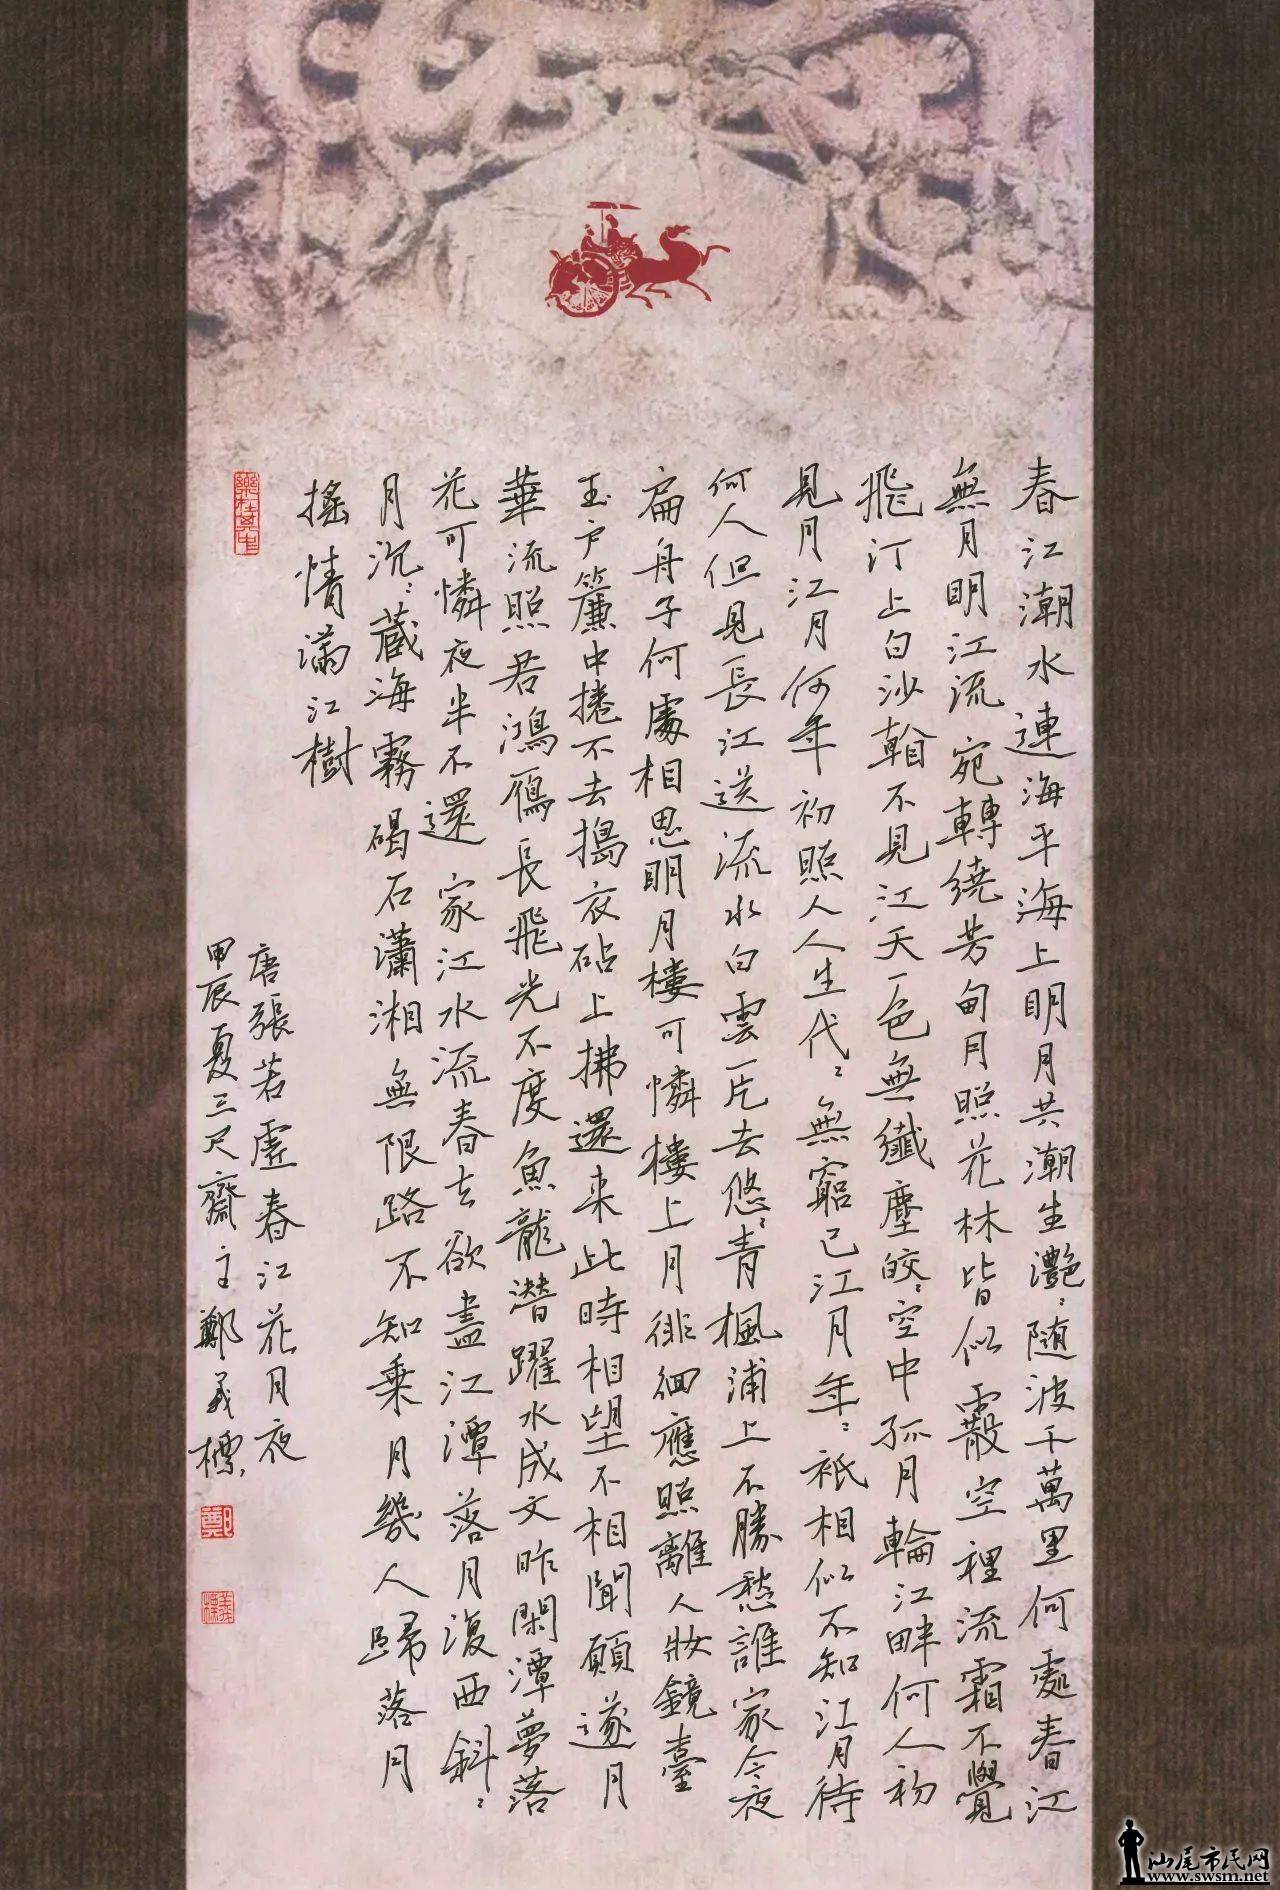 春江潮水連海平海上明月共潮生灩〻随波千萬里何處春江
無月明江流宛轉繞芳甸月照花林皆似霰空裡流霜不覺
飛汀上白沙看不見江天一色無纖塵皎〻空中孤月輪江畔何人初
見月江月何年初照人人生代〻無窮已江月年〻祇相似不知江月待
何人但見長江送流水白雲一片去悠〻青楓浦上不勝愁誰家今夜
扁舟子何處相思明月樓可憐樓上月徘徊應照離人妝鏡臺
玉户簾中捲不去搗衣砧上拂還来此時相望不相聞願遂月
華流照若鴻雁長飛光不度魚龍潛躍水成文昨閑潭夢落
花可憐夜半不還家江水流春去欲盡江潭落月復西斜〻
月沉〻藏海霧碣石瀟湘無限路不知乘月幾人歸落月
搖情滿江樹
唐張若虛春江花月夜
甲辰夏三尺齋主鄭義標
鄭
義標
汕尾市民网
www.swsm.net